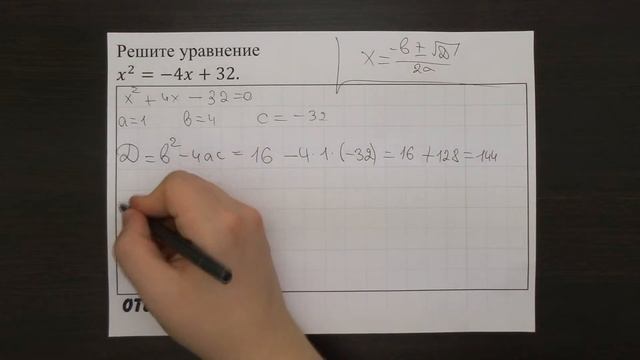 Решите уравнение
x² = −4x + 32.
x = −в ± √D / 2a
x² + 4x − 32 = 0
a = 1 в = 4 c = −32
D = в² − 4ac = 16 − 4 · 1 · (−32) = 16 + 128 = 144